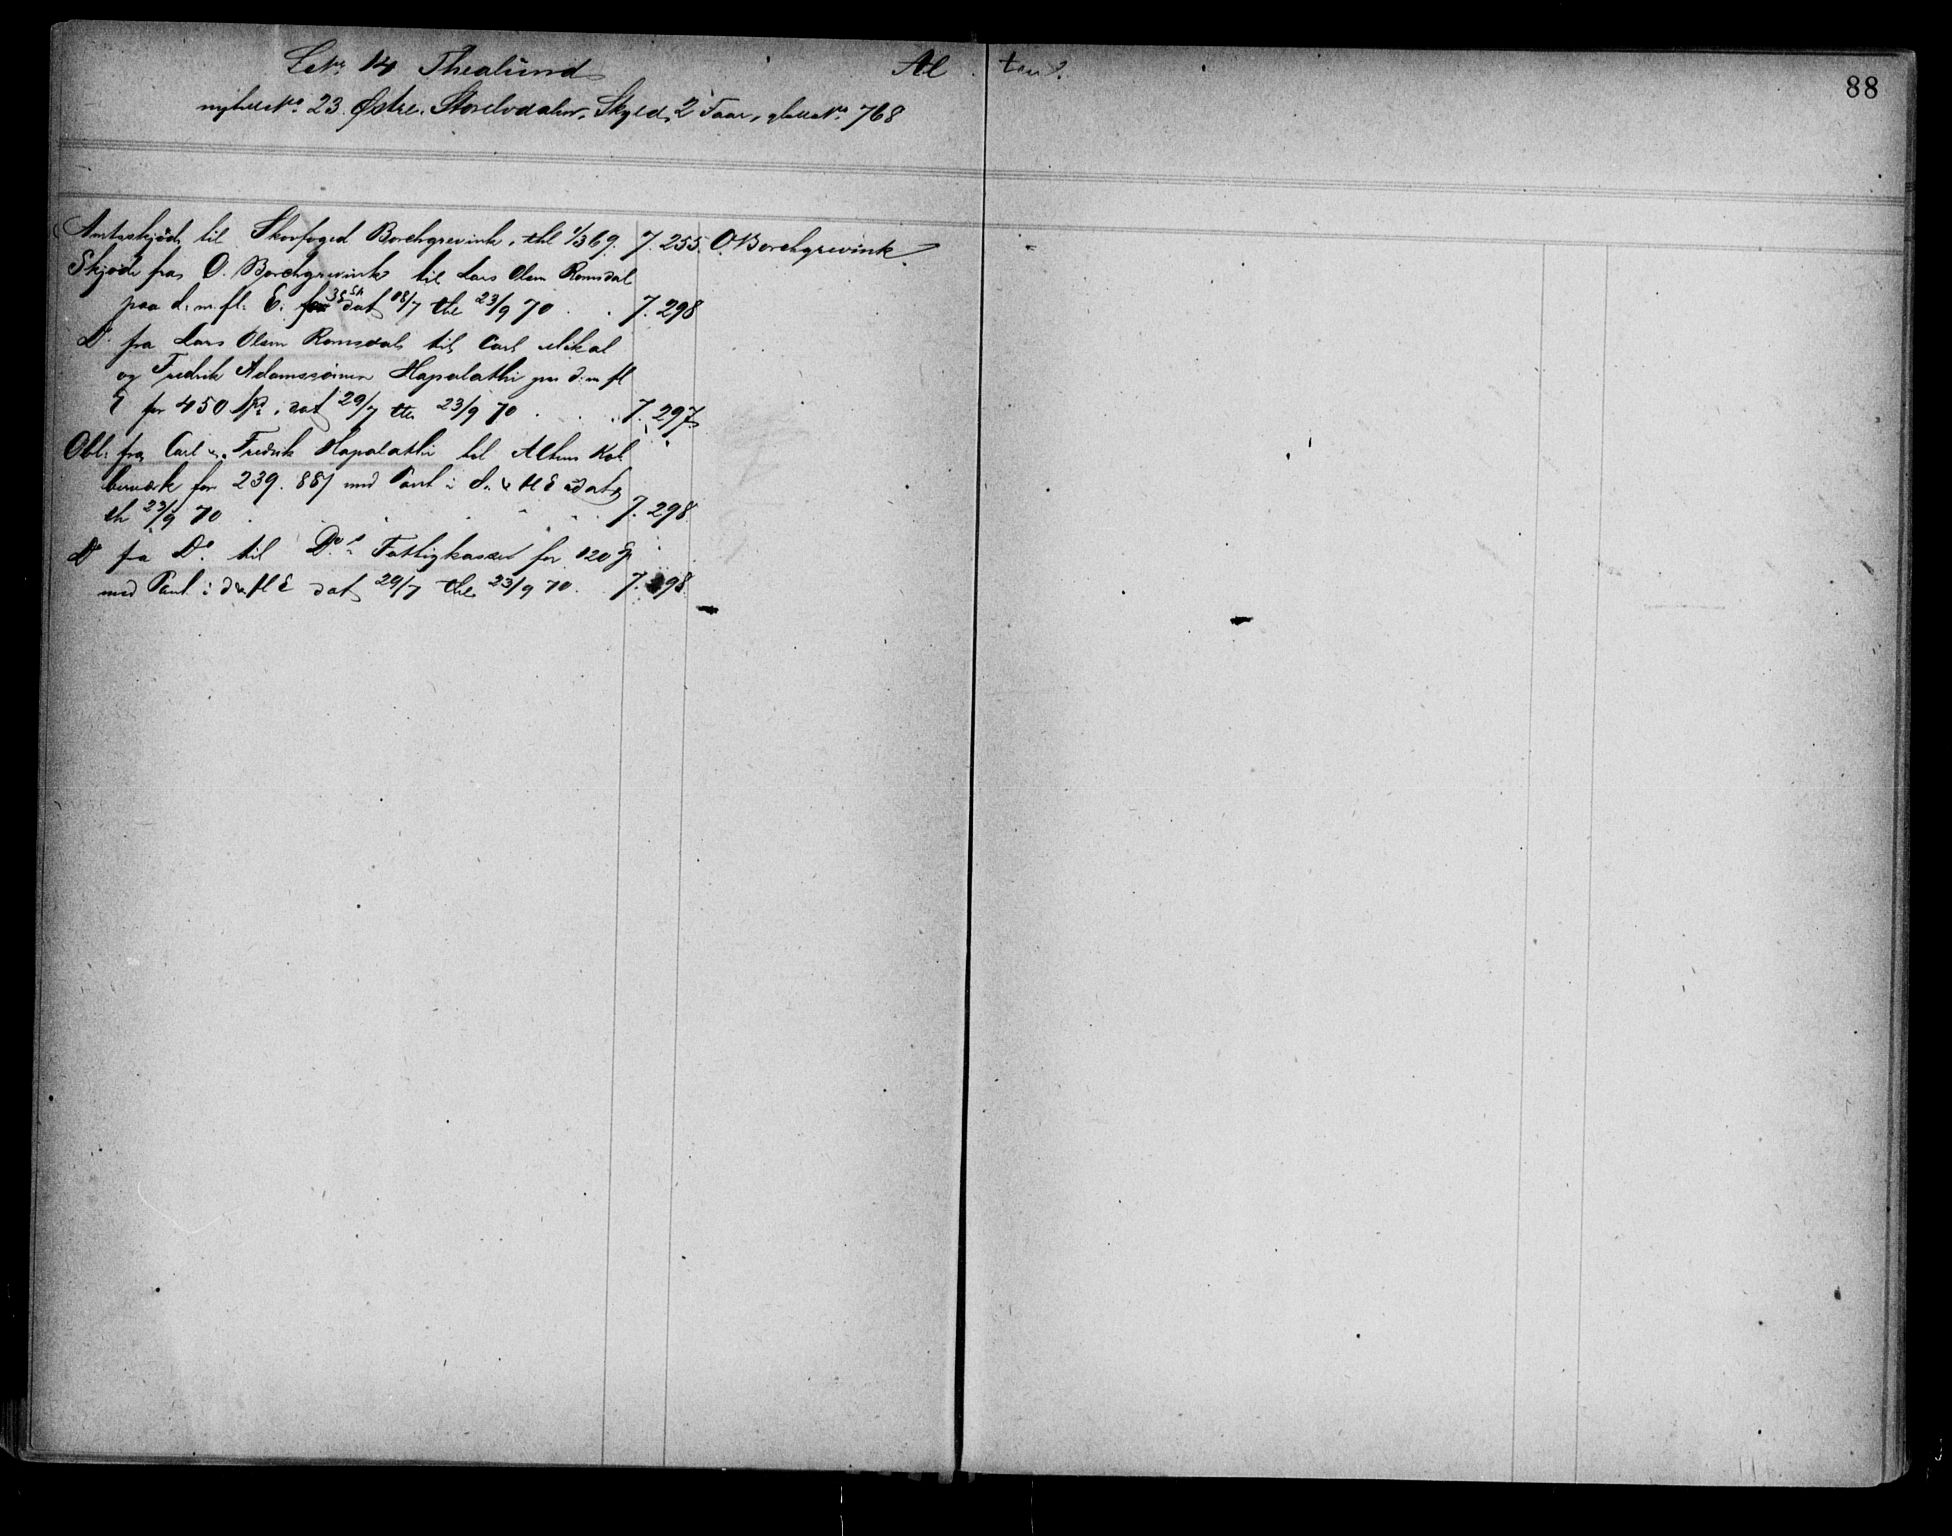 LNr. 14 Thealund Al ten.
88
nyt No. 23. Østre Storelvdalen, Skyld 2 Faar, No. 768
Amtsskjøde til Skovfoged Borchgrevink, thl 1/3 69. 7. 255. O Borchgrevink
Skjøde fra O. Borchgrevink til Lars Olsen Romsdal
paa d. m. fl. E. for 35 Sp dat 18/7 thl 23/9 70 . . 7. 298
Do fra Lars Olsen Romsdal til Carl Mikal
og Fredrik Adamssønner Hapalathi paa d. m fl
E for 450 Sp, dat 29/7 thl 23/9 70 . . 7. 297
Obl. fra Carl & Fredrik Hapalathi til Altens Kob
berværk for 239. 88 / med Pant i d. & fl E dat
th 23/9 70 . . . 7. 298
Do fra Do til Do s Fattigkasse for 120 Sp
med Pant i d & fl E dat 29/7 thl 23/9 70. 7. 298